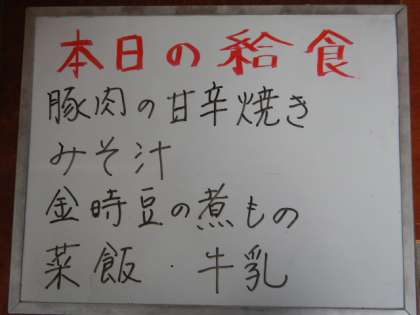 本日の給食
豚肉の甘辛焼き
みそ汁
金時豆の煮もの
菜飯・牛乳